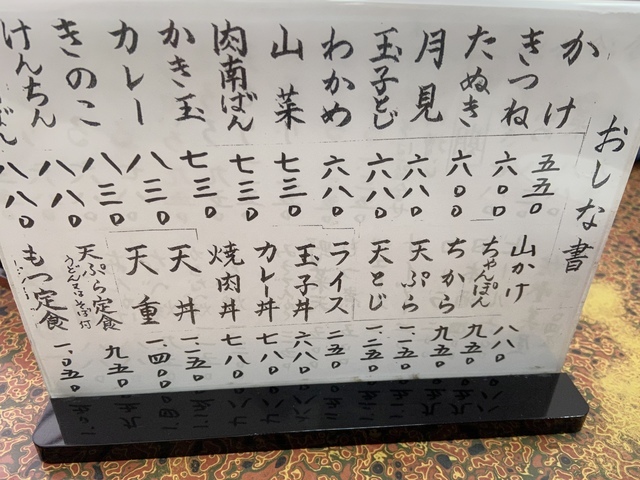 おしな書
かけ 五五〇
きつね 六〇〇
たぬき 六〇〇
月見 六八〇
玉子とじ 六八〇
わかめ 六八〇
山菜 七三〇
肉南ばん 七三〇
かき玉 七三〇
カレー 八三〇
きのこ 八八〇
けんちん 八八〇
山かけ 八八〇
ちゃんぽん 九五〇
ちから 九五〇
天ぷら 一、一五〇
天とじ 一、二五〇
ライス 二五〇
玉子丼 六八〇
カレー丼 七八〇
焼肉丼 七八〇
天丼 一、一五〇
天重 一、四〇〇
天ぷら定食 九五〇
うどん又はそば付
もつ定食 一、〇五〇